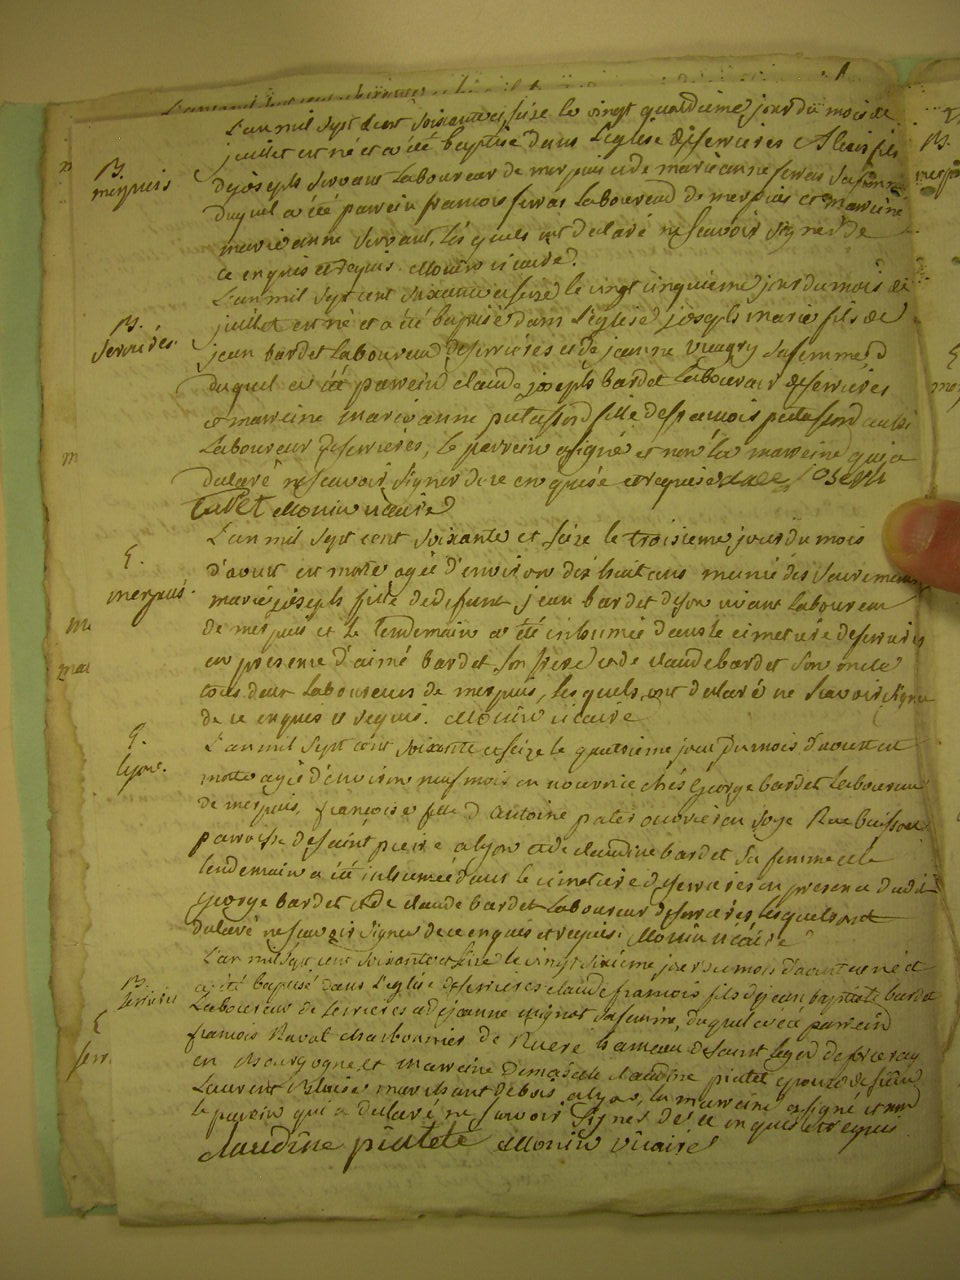 L'an mil sept cent soixante et seize le vingt quatrieme jour du mois de
B.
merpuis
juillet est né et a été baptisé dans l'eglise de serrieres Alexis fils
de joseph servant laboureur de merpuis et de marie anne serras sa femme
duquel a été parrein francois serras laboureur de merpuis et marreine
marie anne servant, lesquels ont declaré ne scavoir signer de
ce enquis et requis. Monin vicaire.
B.
Serrieres.
L'an mil sept cent soixante et seize le vingt cinquieme jour du mois de
juillet est né et a été baptisé dans l'eglise joseph marie fils de
jean bardet laboureur de serrieres et de jeanne sa femme
duquel a été parrein claude joseph bardet laboureur de serrieres
et marreine marie anne fille de francois aussi
laboureur de serrieres, le parrein a signé et non la marreine qui a
declaré ne scavoir signer de ce enquise et requise joseph
Monin vicaire
E.
merpuis.
L'an mil sept cent soixante et seize le troisieme jour du mois
d'aout est morte agée d'environ dix huit ans munie des sacremens
marie joseph fille de defunt jean bardet de son vivant laboureur
de merpuis et le lendemain a été inhumée dans le cimetiere de serrieres
en presence d'aimé bardet son frere et de claude bardet son oncle
tous deux laboureurs de merpuis, lesquels ont declaré ne scavoir signer
de ce enquis et requis. Monin vicaire
E.
lyon.
L'an mil sept cent soixante et seize le quatrieme jour du mois d'aoust est
morte agée d'environ neuf mois en nourrice chés George bardet laboureur
de merpuis, françoise fille d'Antoine ouvrier en soye Rue buisson
parroisse de saint pierre a lyon et de claudine bardet sa femme et le
lendemain a été inhumée dans le cimetiere de serrieres en presence dudit
George bardet et de claude bardet laboureur de serrieres, lesquels ont
declaré ne scavoir signer de ce enquis et requis. Monin vicaire
B.
serrieres
L'an mil sept cent soixante et seize le vingt sixieme jour du mois d'aout est né et
a été baptisé dans l'eglise de serrieres claude francois fils de jean baptiste bardet
laboureur de serrieres et de jeanne sa femme, duquel a été parrein
francois Ravat charbonnier de hameau de saint leger de
en bourgogne et marreine demoiselle claudine piatet epouse de sieur
Laurent Blaise marchant de bois a lyon, la marreine a signé et non
le parrein qui a declaré ne scavoir signer de ce enquis et requis
claudine piatete Monin vicaire